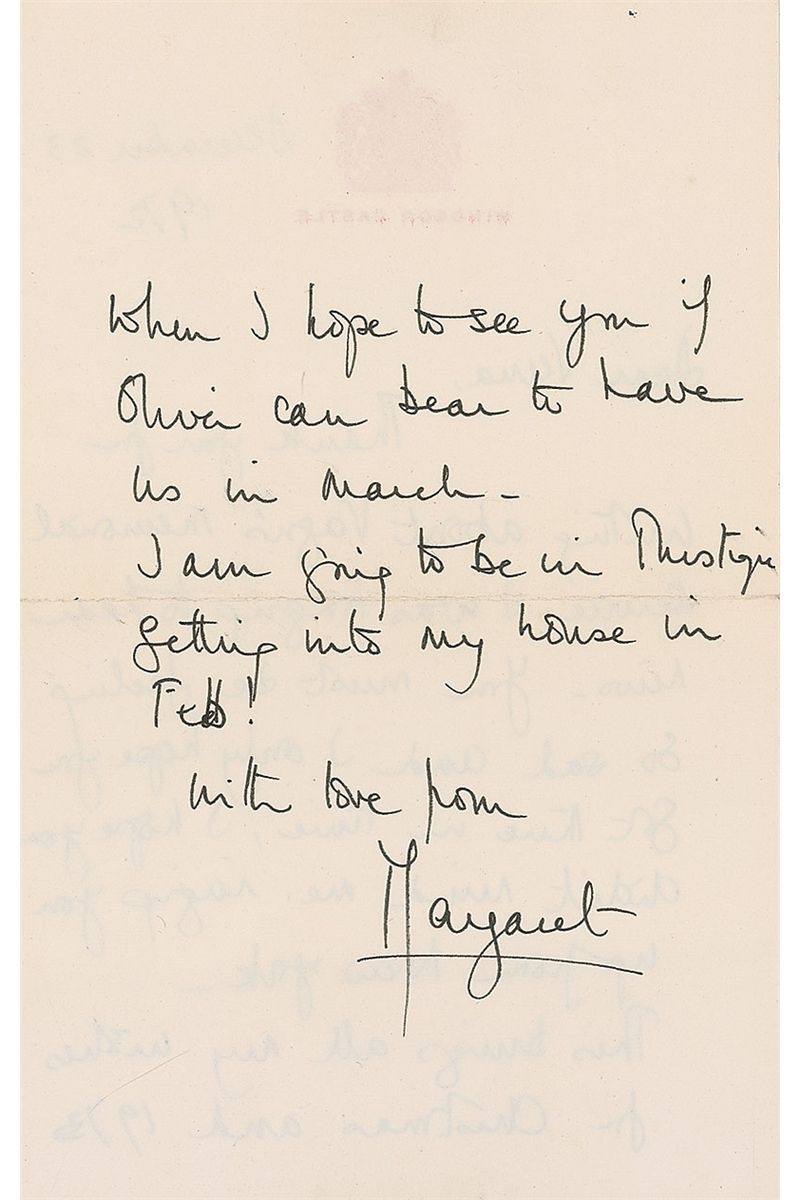 When I hope to see you if
Oliver can bear to have
us in March -
I am going to be in Mustique
getting into my house in
Feb!
With love from
Margaret